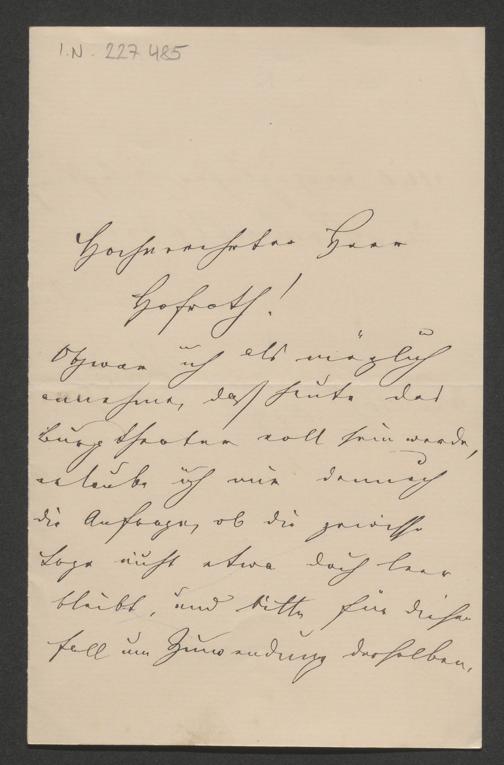 I.N. 227485
Hochverehrter Herr
Hofrath!
Obzwar ich als möglich
annehme, daß heute das
Burgtheater voll sein werde,
erlaube ich mir dennoch
die Anfrage, ob die gewisse
Loge nicht etwa doch leer
bleibt, und bitte für diesen
Fall um Zuwendung derselben,